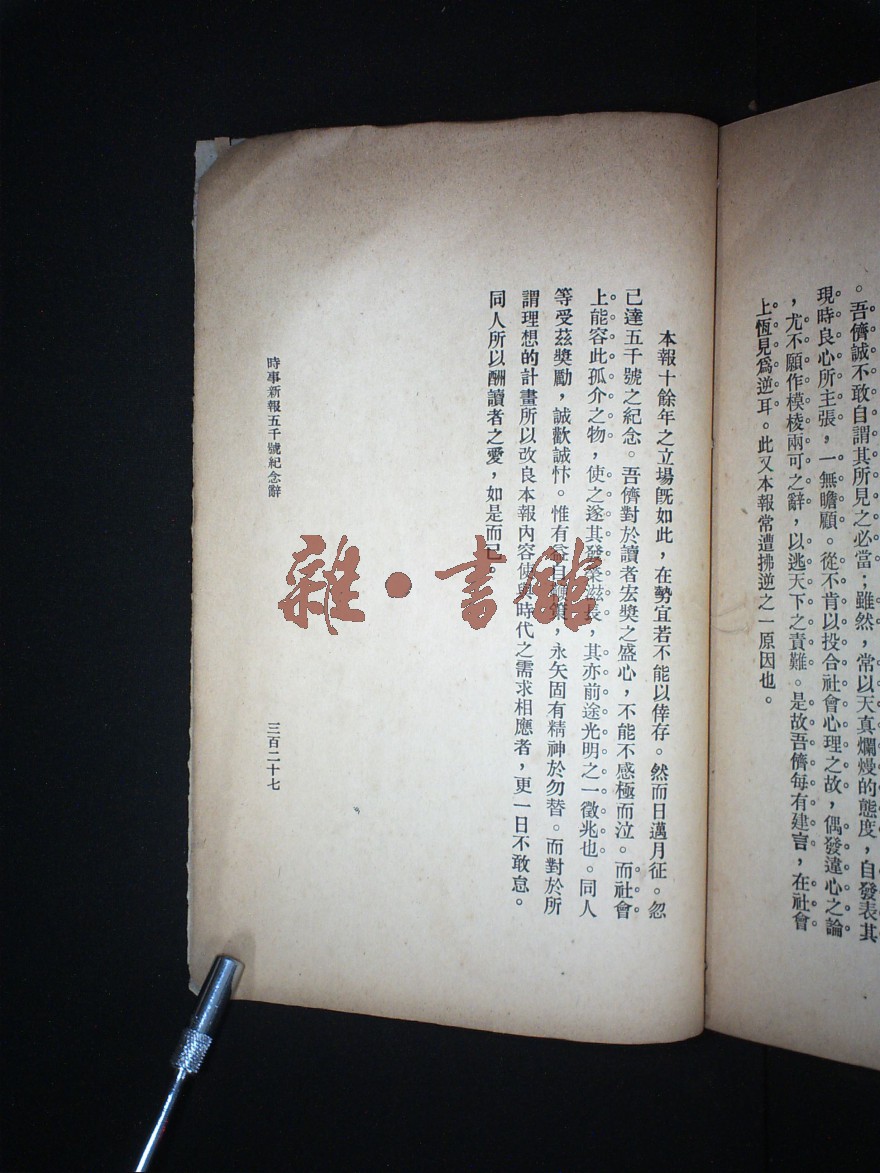 。吾儕誠不敢自謂其所見之必當；雖然，常以天真爛熳的態度，自發表其
現時良心所主張，一無瞻顧。從不肯以投合社會心理之故，偶發違心之論
，尤不願作模棱兩可之辭，以逃天下之責難。是故吾儕每有建言，在社會
上恆見爲逆耳。此又本報常遭拂逆之一原因也。
本報十餘年之立場旣如此，在勢宜若不能以倖存。然而日邁月征。忽
已達五千號之紀念。吾儕對於讀者宏獎之盛心，不能不感極而泣。而社會
上能容此孤介之物，使之遂其發榮滋長，其亦前途光明之一徵兆也。同人
等受茲獎勵，誠歡誠忭。惟有益自，永矢固有精神於勿替。而對於所
謂理想的計畫所以改良本報內容使與時代之需求相應者，更一日不敢怠。
同人所以酬讀者之愛，如是而已。
時事新報五千號紀念辭
三百二十七
雜·書館